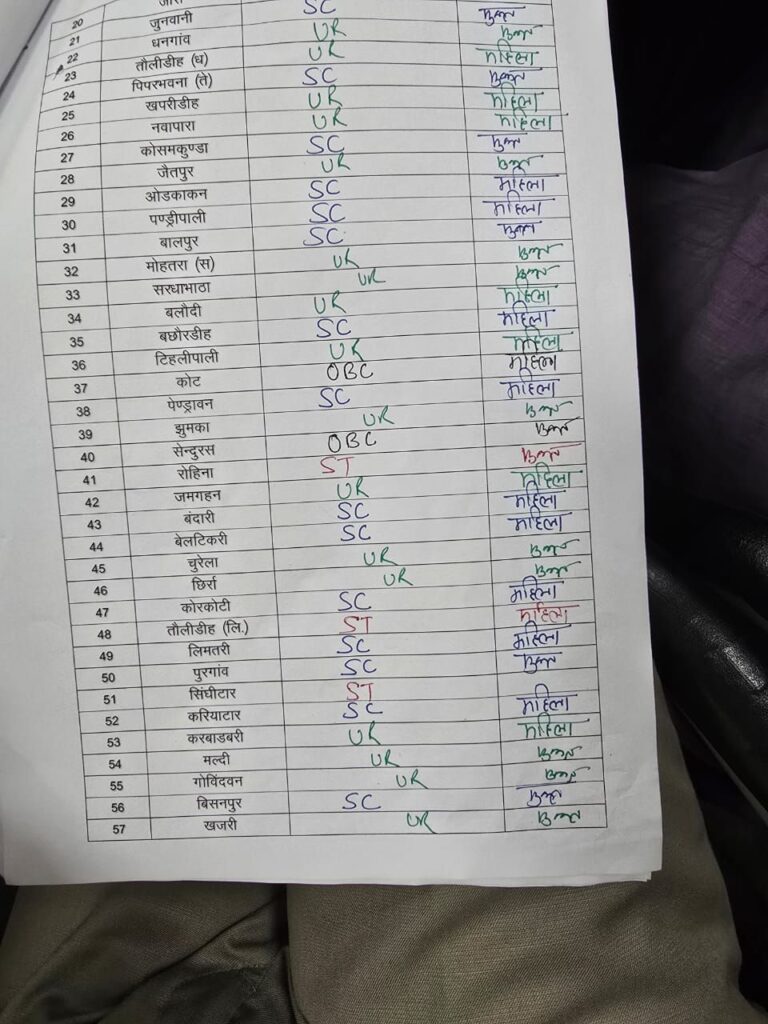 20
21 जुनवानी SC मुक्त
22 धनगांव UR मुक्त
23 तौलीडीह (ध) UR महिला
24 पिपरभवना (ते) SC मुक्त
25 खपरीडीह UR महिला
26 नवापारा UR महिला
27 कोसमकुण्डा SC मुक्त
28 जैतपुर UR मुक्त
29 ओडकाकन SC महिला
30 पण्ड्रीपाली SC महिला
31 बालपुर SC मुक्त
32 मोहतरा (स) UR मुक्त
33 सरधाभाठा UR मुक्त
34 बलौदी UR महिला
35 बछौरडीह SC महिला
36 टिहलीपाली UR महिला
37 कोट OBC महिला
38 पेण्ड्रावन SC महिला
39 झुमका UR मुक्त
40 सेन्दुरस OBC मुक्त
41 रोहिना ST मुक्त
42 जमगहन UR महिला
43 बंदारी SC महिला
44 बेलटिकरी SC महिला
45 चुरेला UR मुक्त
46 छिर्रा UR मुक्त
47 कोरकोटी SC महिला
48 तौलीडीह (लि.) ST महिला
49 लिमतरी SC महिला
50 पुरगांव SC मुक्त
51 सिंघीटार ST
52 करियाटार SC महिला
53 करबाडबरी UR महिला
54 मल्दी UR मुक्त
55 गोविंदवन UR मुक्त
56 बिसनपुर SC मुक्त
57 खजरी UR मुक्त